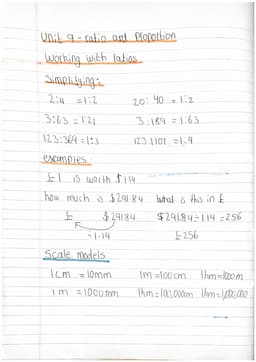 Unit 9 - ratio and Proportion
Working with ratios
Simplifying:
2:4 = 1:2 20:40 = 1:2
3:63 = 1:21 3:189 = 1:63
123:369 = 1:3 123:1107 = 1:9
examples:
£1 is worth $1.14
how much is $291.84 What is this in £
£ $291.84 $291.84÷1.14 = 256
÷1.14 £256
Scale models
1cm = 10mm 1m = 100cm 1km = 1000m
1m = 1000mm 1km = 100,000cm 1km = 1,000,000